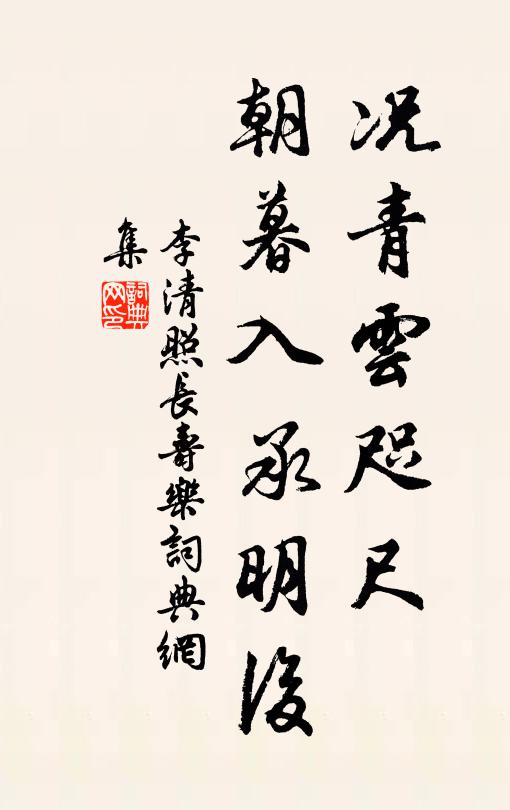 况青雲咫尺
朝暮入承明後
李清照長壽樂詞典網
集
詞典
网印